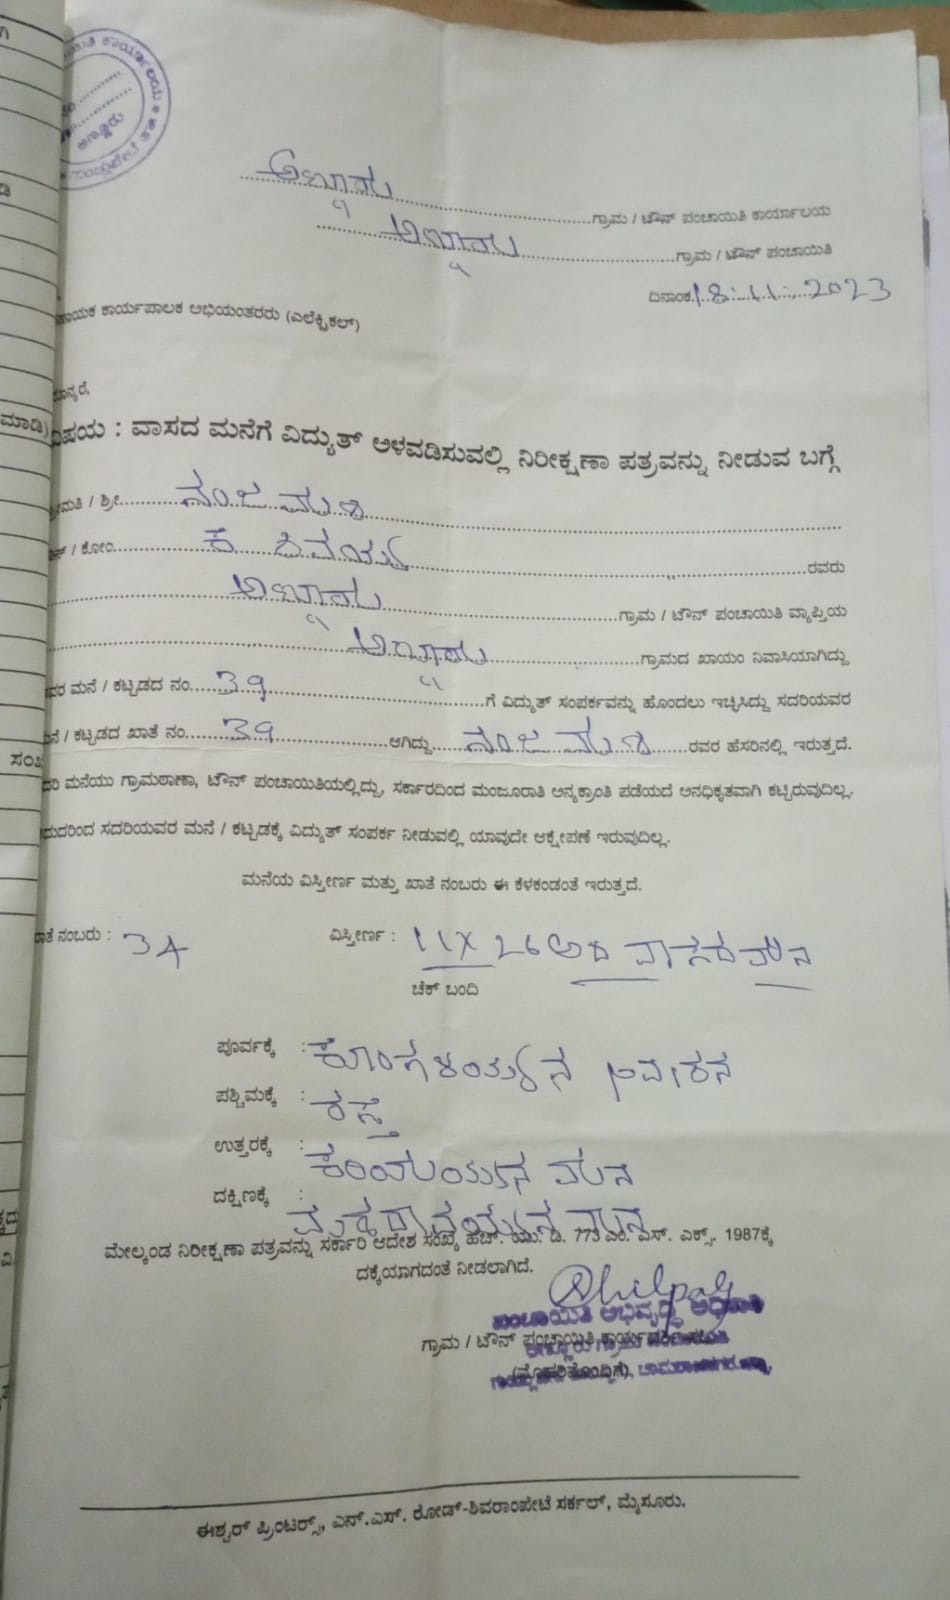 ಕಾರ್ಯಾಲಯ
ಅಣ್ಣೂರು
ಅಣ್ಣೂರು ಗ್ರಾಮ / ಟೌನ್ ಪಂಚಾಯಿತಿ ಕಾರ್ಯಾಲಯ
ಅಣ್ಣೂರು ಗ್ರಾಮ / ಟೌನ್ ಪಂಚಾಯಿತಿ
ದಿನಾಂಕ 18.11.2023
ಕಾರ್ಯಪಾಲಕ ಅಭಿಯಂತರರು (ಎಲೆಕ್ಟ್ರಿಕಲ್)
ವಾಸದ ಮನೆಗೆ ವಿದ್ಯುತ್ ಅಳವಡಿಸುವಲ್ಲಿ ನಿರೀಕ್ಷಣಾ ಪತ್ರವನ್ನು ನೀಡುವ ಬಗ್ಗೆ
/ ಶ್ರೀ ನಂಜಮಣಿ
/ ಕೋಂ ಕೆ ಶಿವಯ್ಯ ರವರು
ಅಣ್ಣೂರು ಗ್ರಾಮ / ಟೌನ್ ಪಂಚಾಯಿತಿ ವ್ಯಾಪ್ತಿಯ
ಅಣ್ಣೂರು ಗ್ರಾಮದ ಖಾಯಂ ನಿವಾಸಿಯಾಗಿದ್ದು
ಮನೆ / ಕಟ್ಟಡದ ನಂ. 39 ಗೆ ವಿದ್ಯುತ್ ಸಂಪರ್ಕವನ್ನು ಹೊಂದಲು ಇಚ್ಛಿಸಿದ್ದು ಸದರಿಯವರ
/ ಕಟ್ಟಡದ ಖಾತೆ ನಂ. 39 ಆಗಿದ್ದು ನಂಜಮಣಿ ರವರ ಹೆಸರಿನಲ್ಲಿ ಇರುತ್ತದೆ.
ಮನೆಯು ಗ್ರಾಮಠಾಣಾ, ಟೌನ್ ಪಂಚಾಯಿತಿಯಲ್ಲಿದ್ದು, ಸರ್ಕಾರದಿಂದ ಮಂಜೂರಾತಿ ಅನ್ಯಕ್ರಾಂತಿ ಪಡೆಯದೆ ಅನಧಿಕೃತವಾಗಿ ಕಟ್ಟಿರುವುದಿಲ್ಲ.
ಸದರಿಯವರ ಮನೆ / ಕಟ್ಟಡಕ್ಕೆ ವಿದ್ಯುತ್ ಸಂಪರ್ಕ ನೀಡುವಲ್ಲಿ ಯಾವುದೇ ಆಕ್ಷೇಪಣೆ ಇರುವುದಿಲ್ಲ.
ಮನೆಯ ವಿಸ್ತೀರ್ಣ ಮತ್ತು ಖಾತೆ ನಂಬರು ಈ ಕೆಳಕಂಡಂತೆ ಇರುತ್ತದೆ.
ನಂಬರು : 34 ವಿಸ್ತೀರ್ಣ : 11X26 ಅಡಿ ವಾಸದಮನೆ
ಚೆಕ್ ಬಂದಿ
ಪೂರ್ವಕ್ಕೆ :
ಪಶ್ಚಿಮಕ್ಕೆ : ರಸ್ತೆ
ಉತ್ತರಕ್ಕೆ : ಕರಿಯಯ್ಯನ ಮನೆ
ದಕ್ಷಿಣಕ್ಕೆ : ಮನೆ
ಮೇಲ್ಕಂಡ ನಿರೀಕ್ಷಣಾ ಪತ್ರವನ್ನು ಸರ್ಕಾರಿ ಆದೇಶ ಸಂಖ್ಯೆ ಹೆಚ್. ಯು. ಡಿ. 773 ಎಂ. ಎಸ್. ಎಕ್ಸ್. 1987ಕ್ಕೆ
ದಕ್ಕೆಯಾಗದಂತೆ ನೀಡಲಾಗಿದೆ.
ಪಂಚಾಯಿತಿ ಅಭಿವೃದ್ಧಿ ಅಧಿಕಾರಿ
ಗ್ರಾಮ / ಟೌನ್ ಪಂಚಾಯಿತಿ ಕಾರ್ಯದರ್ಶಿ
(ಮೊಹರಿನೊಂದಿಗೆ)
ಈಶ್ವರ್ ಪ್ರಿಂಟರ್ಸ್, ಎನ್.ಎಸ್. ರೋಡ್-ಶಿವರಾಂಪೇಟೆ ಸರ್ಕಲ್, ಮೈಸೂರು.